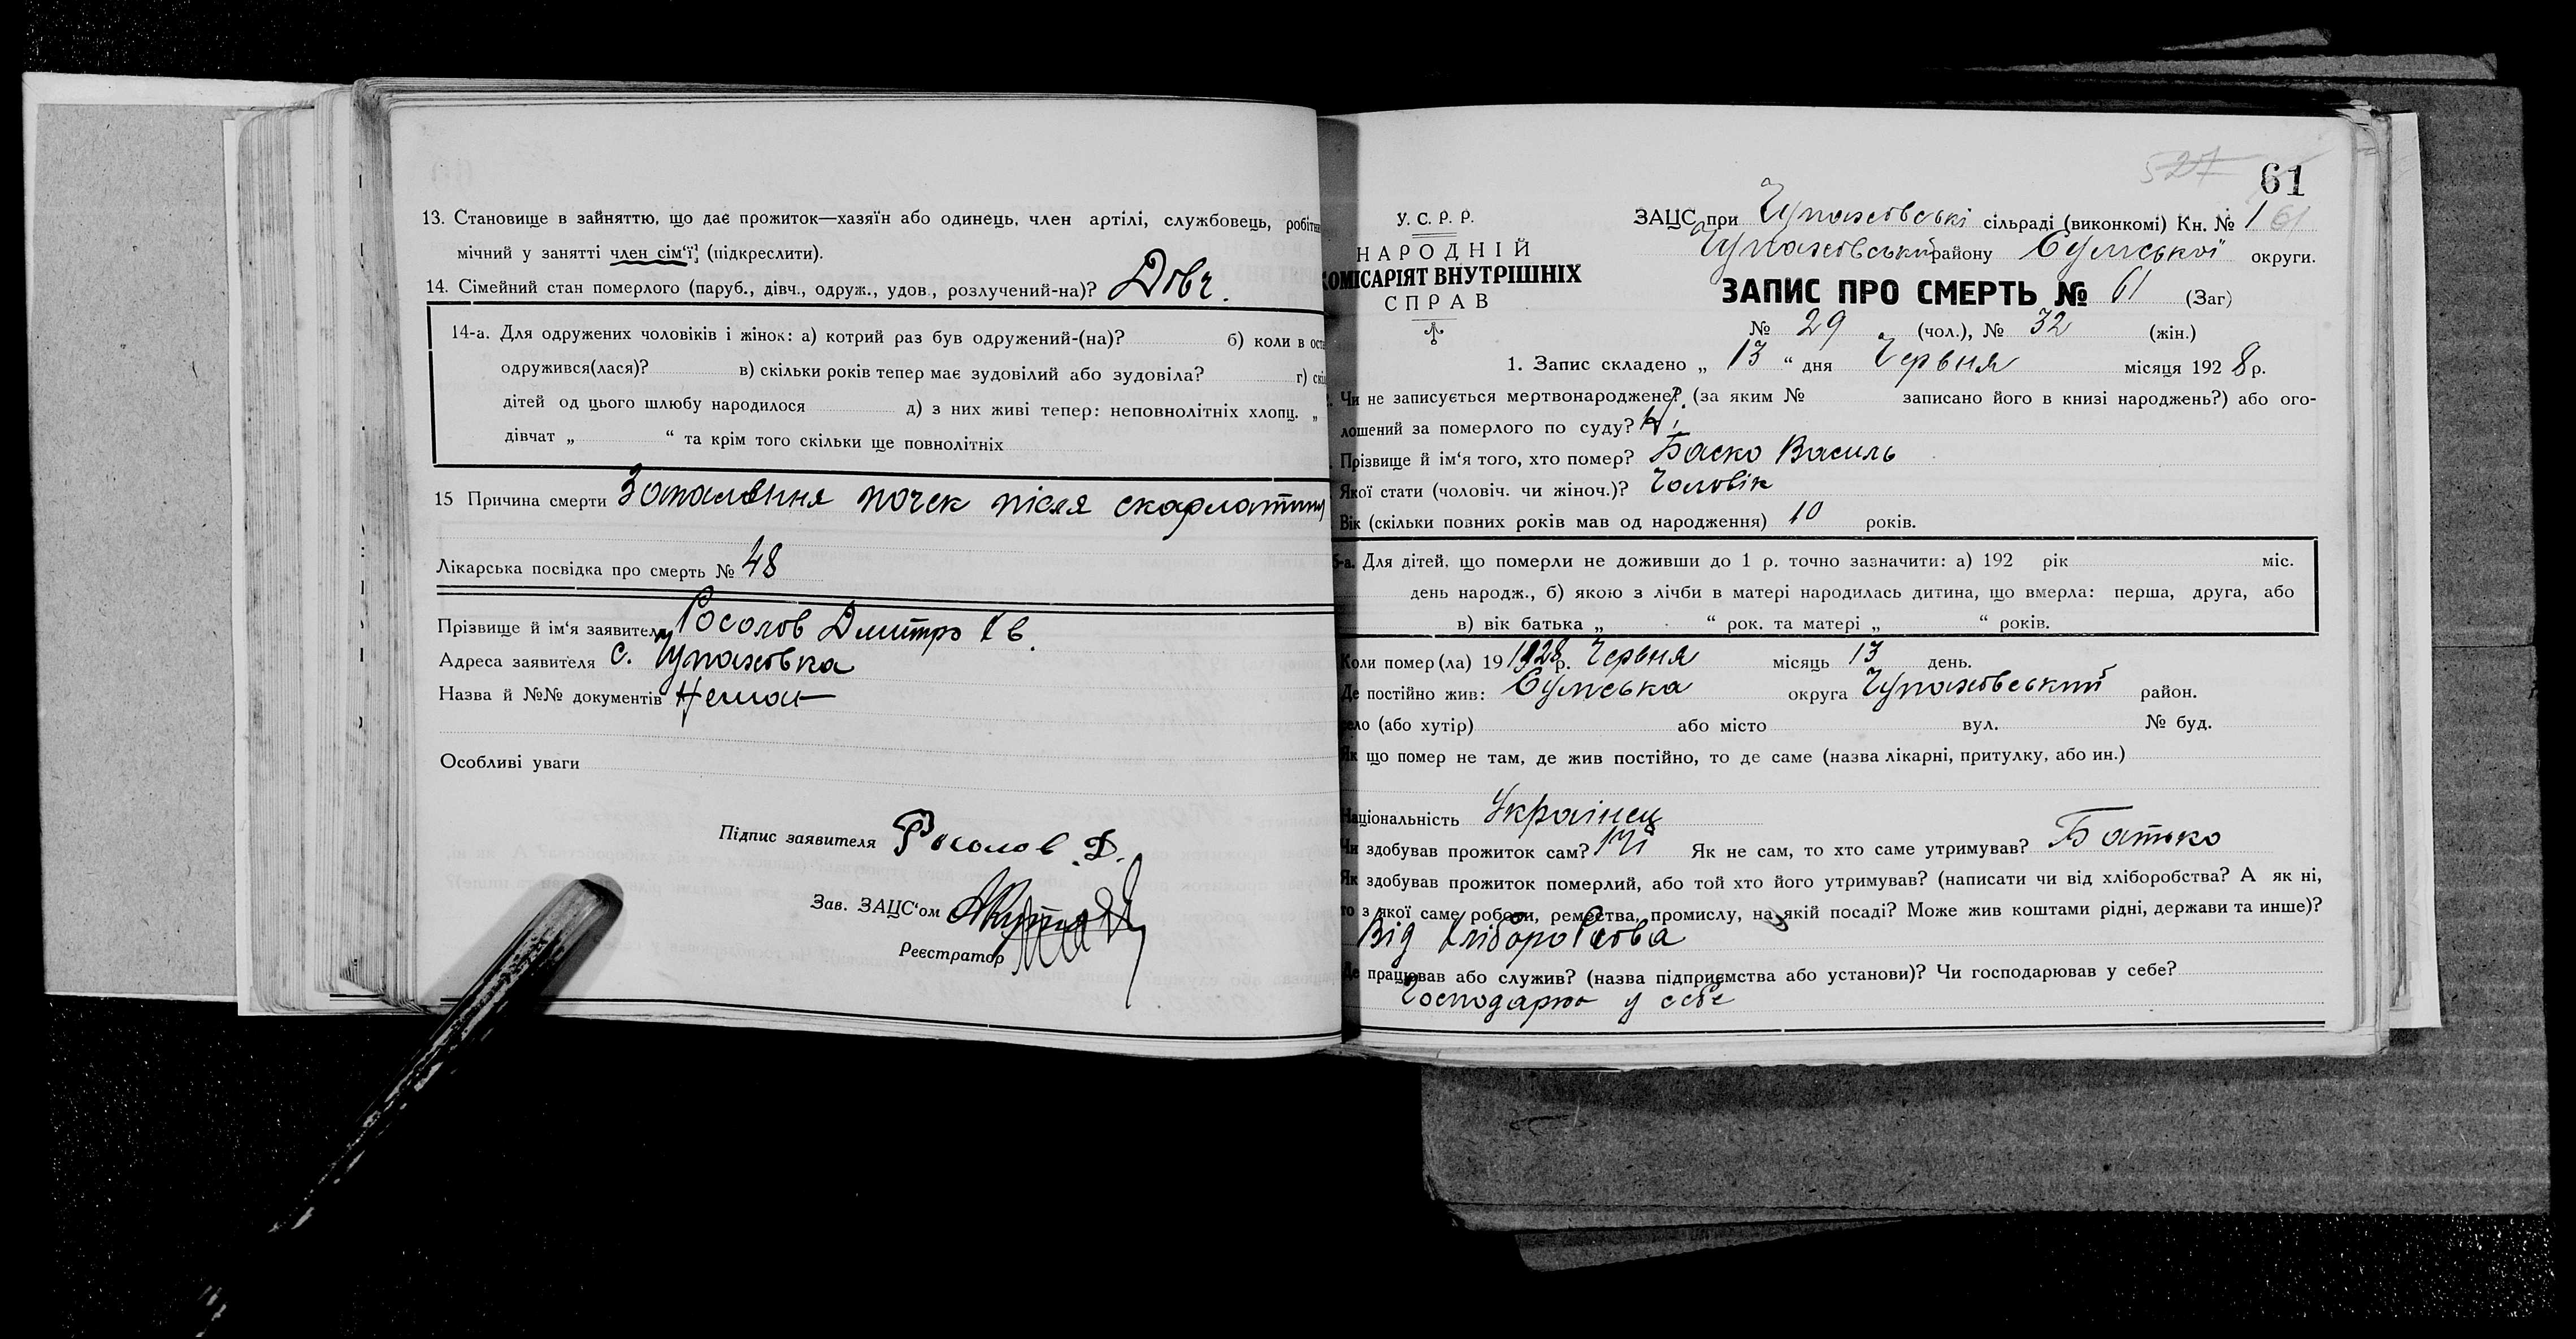 13. Становище в зайняттю, що дає прожиток—хазяїн або одинець, член артілі, службовець,
мічний у занятті член сім'ї, (підкреслити).
14. Сімейний стан померлого (паруб., дівч., одруж., удов., розлучений-на)? Дівч.
14-а. Для одружених чоловіків і жінок: а) котрий раз був одружений-(на)? б) коли в
одружився(лася)? в) скільки років тепер має зудовілий або зудовіла? г)
дітей од цього шлюбу народилося д) з них живі тепер: неповнолітніх хлопц. „
дівчат „ “ та крім того скільки ще повнолітніх
15 Причина смерти Запалення почек після скарлатини
Лікарська посвідка про смерть № 48
Прізвище й ім'я заявителя Росолов Дмитро Ів.
Адреса заявителя с. Чупаховка
Назва й №№ документів Немає
Особливі уваги
Підпис заявителя Росолов Д.
Зав. ЗАЦС'ом
Реєстратор
527
61
У. С. Р. Р.
НАРОДНІЙ
КОМІСАРІЯТ ВНУТРІШНІХ
СПРАВ
ЗАЦС при Чупаховські сільраді (виконкомі) Кн. № 1 61
Чупаховський району Сумської округи.
ЗАПИС ПРО СМЕРТЬ № 61 (Заг)
№ 29 (чол.), № 32 (жін.)
1. Запис складено „ 13 “ дня Червня місяця 1928 р.
Чи не записується мертвонароджене? (за яким № записано його в книзі народжень?) або ого-
лошений за померлого по суду? Ні
Прізвище й ім'я того, хто помер? Баско Василь
Якої стати (чоловіч. чи жіноч.)? Чоловік
Вік (скільки повних років мав од народження) 10 років.
6-а. Для дітей, що померли не доживши до 1 р. точно зазначити: а) 192 рік міс.
день народж., б) якою з лічби в матері народилась дитина, що вмерла: перша, друга, або
в) вік батька „ “ рок. та матері „ “ років.
Коли помер(ла) 19 1928 р. Червня місяць 13 день.
Де постійно жив: Сумська округа Чупаховський район.
село (або хутір) або місто вул. № буд.
Як що помер не там, де жив постійно, то де саме (назва лікарні, притулку, або ин.)
Національність Украінец
Чи здобував прожиток сам? Ні Як не сам, то хто саме утримував? Батько
Як здобував прожиток померлий, або той хто його утримував? (написати чи від хліборобства? А як ні,
то з якої саме роботи, ремества, промислу, на якій посаді? Може жив коштами рідні, держави та инше)?
Від хліборобства
Де працював або служив? (назва підприємства або установи)? Чи господарював у себе?
Господарює у себе